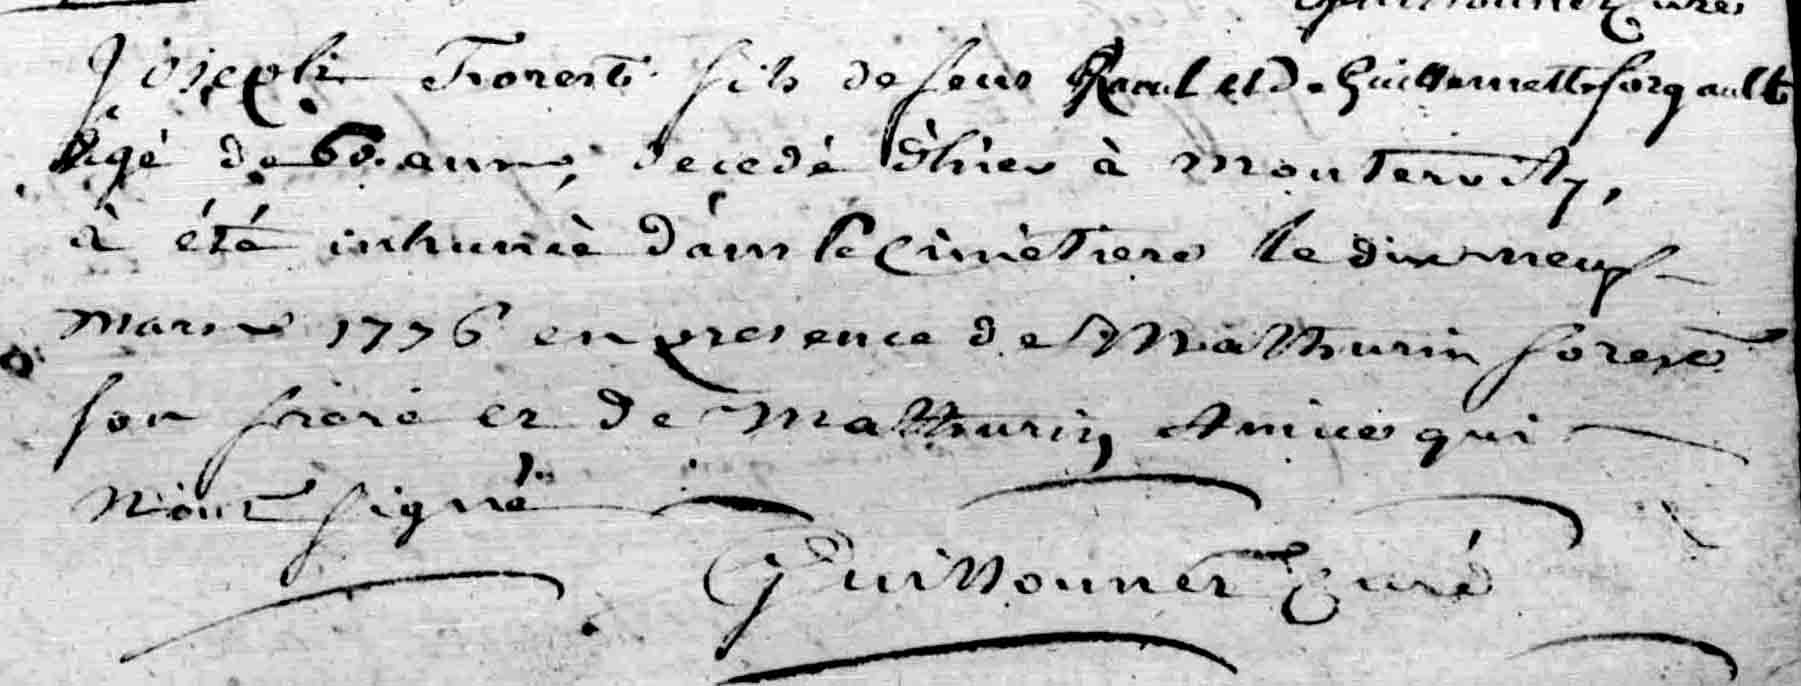 Guillonnet Curé
Joseph Forest fils de feus Raoul et de Guillemette forgault
Agé de 60. anns, decedé d'hier à Montervilly,
à été inhumé dans le Cimetiere le dix neuf
Mars 1776 en presence de Mathurin forest
son frere et de Mathurin Amice qui
N'ont signé
Guillonnet Curé